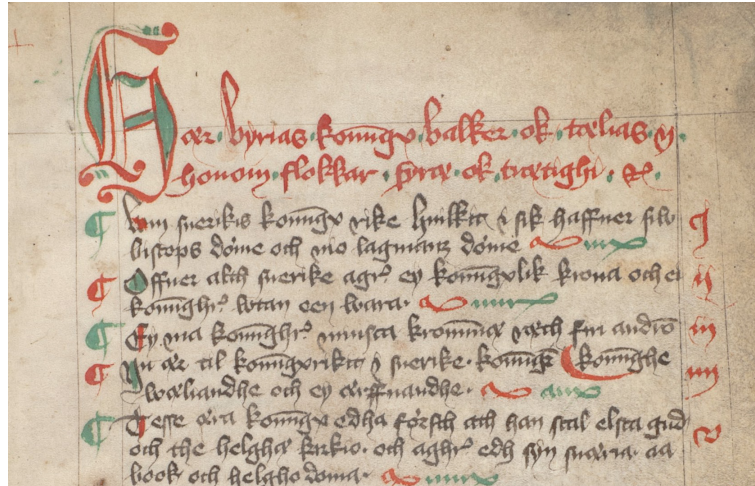 Hær byrias konungx balker ok tælias ij
honom flokkar fyræ ok trætighi
Um suerikis konungx rike huilkit i sik haffuer siw j
biscops døme och nio lagmanz døme
Offuer alth suerike agr ey konungxlik krona och ei ij
konunghr vtan een wara
Ey ma konunghr mista kronunæ ræth sin iij
Nu ær til konungxrikit i suerike konung konunghe iiij
wæliandhe och ey ærffuandhe
Tesse æra konungx edhaførsth ath han scal elska gud v
och the helghæ kirkio och aghr edh syn suæria aa
book och helghodoma